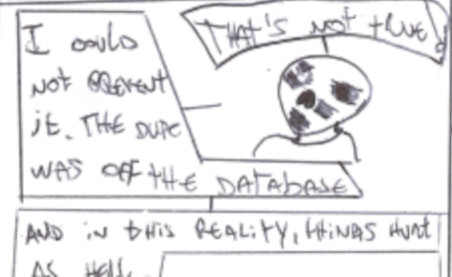 I COULD
NOT PREVENT
IT. THE DUPE
WAS OFF THE DATABASE
THAT'S NOT TRUE!
AND IN THIS REALITY, THINGS HURT
AS HELL.